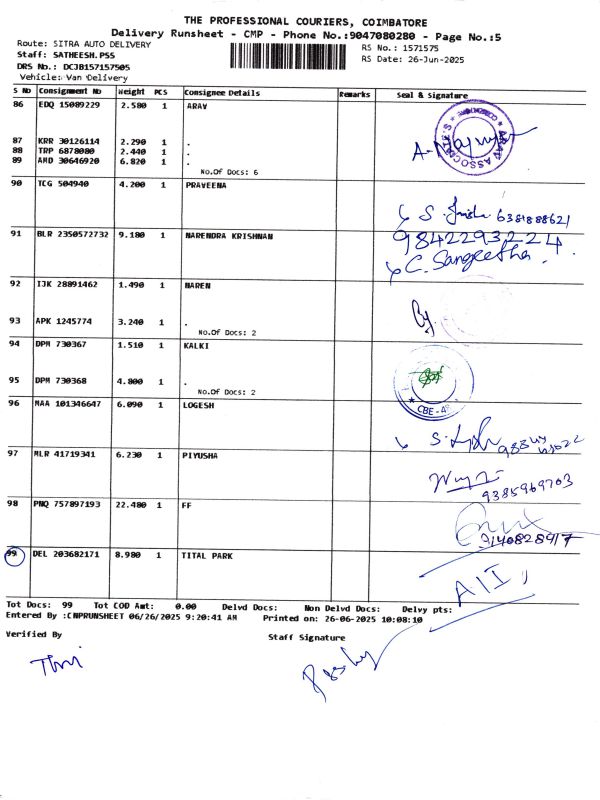 THE PROFESSIONAL COURIERS, COIMBATORE
Delivery Runsheet - CMP - Phone No.:9047080280 - Page No.:5
Route: SITRA AUTO DELIVERY
RS No.: 1571575
Staff: SATHEESH.PSS
RS Date: 26-Jun-2025
DRS No.: DCJB157157505
Vehicle: Van Delivery
S No Consignment No Weight PCS Consignee Details Remarks Seal & Signature
86 EDQ 15089229 2.580 1 ARAV
87 KRR 30126114 2.290 1 .
88 TRP 6878080 2.440 1 .
89 AMD 30646920 6.820 1 .
No.Of Docs: 6
90 TCG 504940 4.200 1 PRAVEENA
6381888621
91 BLR 2350572732 9.180 1 NARENDRA KRISHNAN
9842293224
C. Sangeetha.
92 IJK 28891462 1.490 1 NAREN
93 APK 1245774 3.240 1 .
No.Of Docs: 2
94 DPM 730367 1.510 1 KALKI
95 DPM 730368 4.800 1 .
No.Of Docs: 2
96 MAA 101346647 6.090 1 LOGESH
97 MLR 41719341 6.230 1 PIYUSHA
9385969703
98 PNQ 757897193 22.480 1 FF
9140828917
99 DEL 203682171 8.980 1 TITAL PARK
Tot Docs: 99 Tot COD Amt: 0.00 Delvd Docs: Non Delvd Docs: Delvy pts:
Entered By :CMPRUNSHEET 06/26/2025 9:20:41 AM Printed on: 26-06-2025 10:08:10
Verified By
Staff Signature